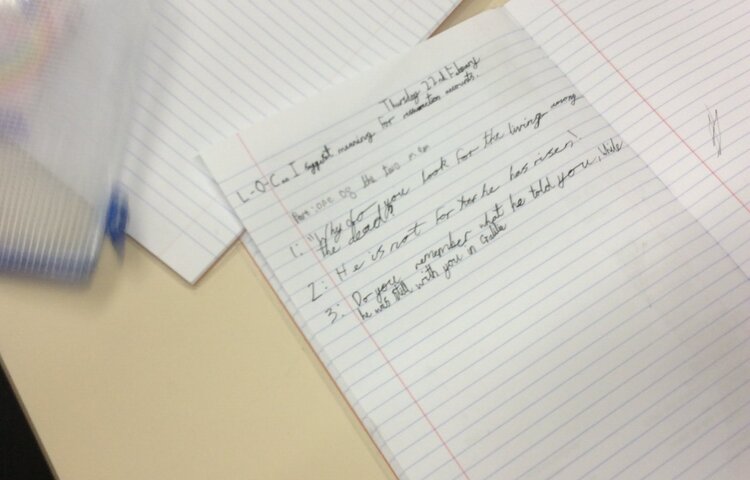 Thursday 22nd February
L-O-C: I suggest meaning for resurrection accounts.
one of the two men
1: "Why do you look for the living among
the dead?
2: He is not for he has risen!
3: Do you remember what he told you, while
he was still with you in